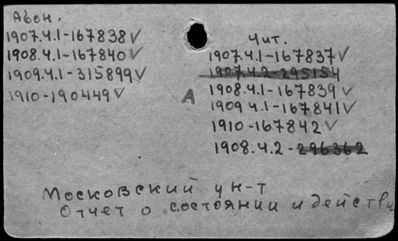 Абон.
1907.4.1-167838 ✓
1908.4.1-167840 ✓
1909.4.1-315899 ✓
1910-190449 ✓
А
Чит.
1907.4.1-167837 ✓
1907.4.2-295154
1908.4.1-167839 ✓
1909.4.1-167841 ✓
1910-167842 ✓
1908.4.2-296362
Московский ун-т
Отчет о состоянии и действи